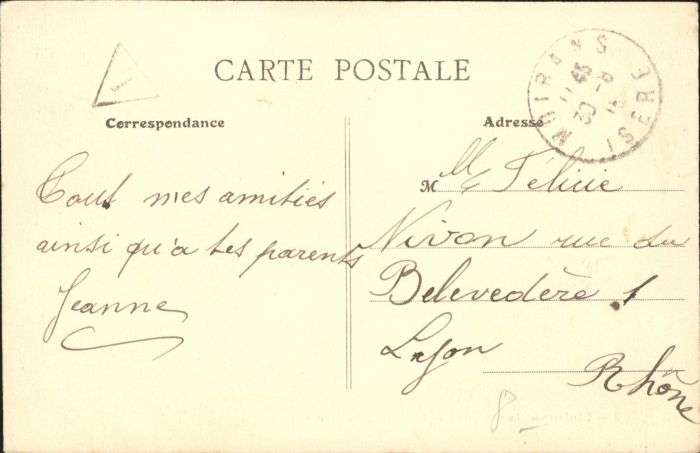 CARTE POSTALE
Correspondance
Adresse
MOIRANS
ISERE
Tout mes amitiés
ainsi qu'a tes parents
Jeanne
M Mlle Félicie
Nivon rue du
Belevedère 1
Lyon
Rhône
8